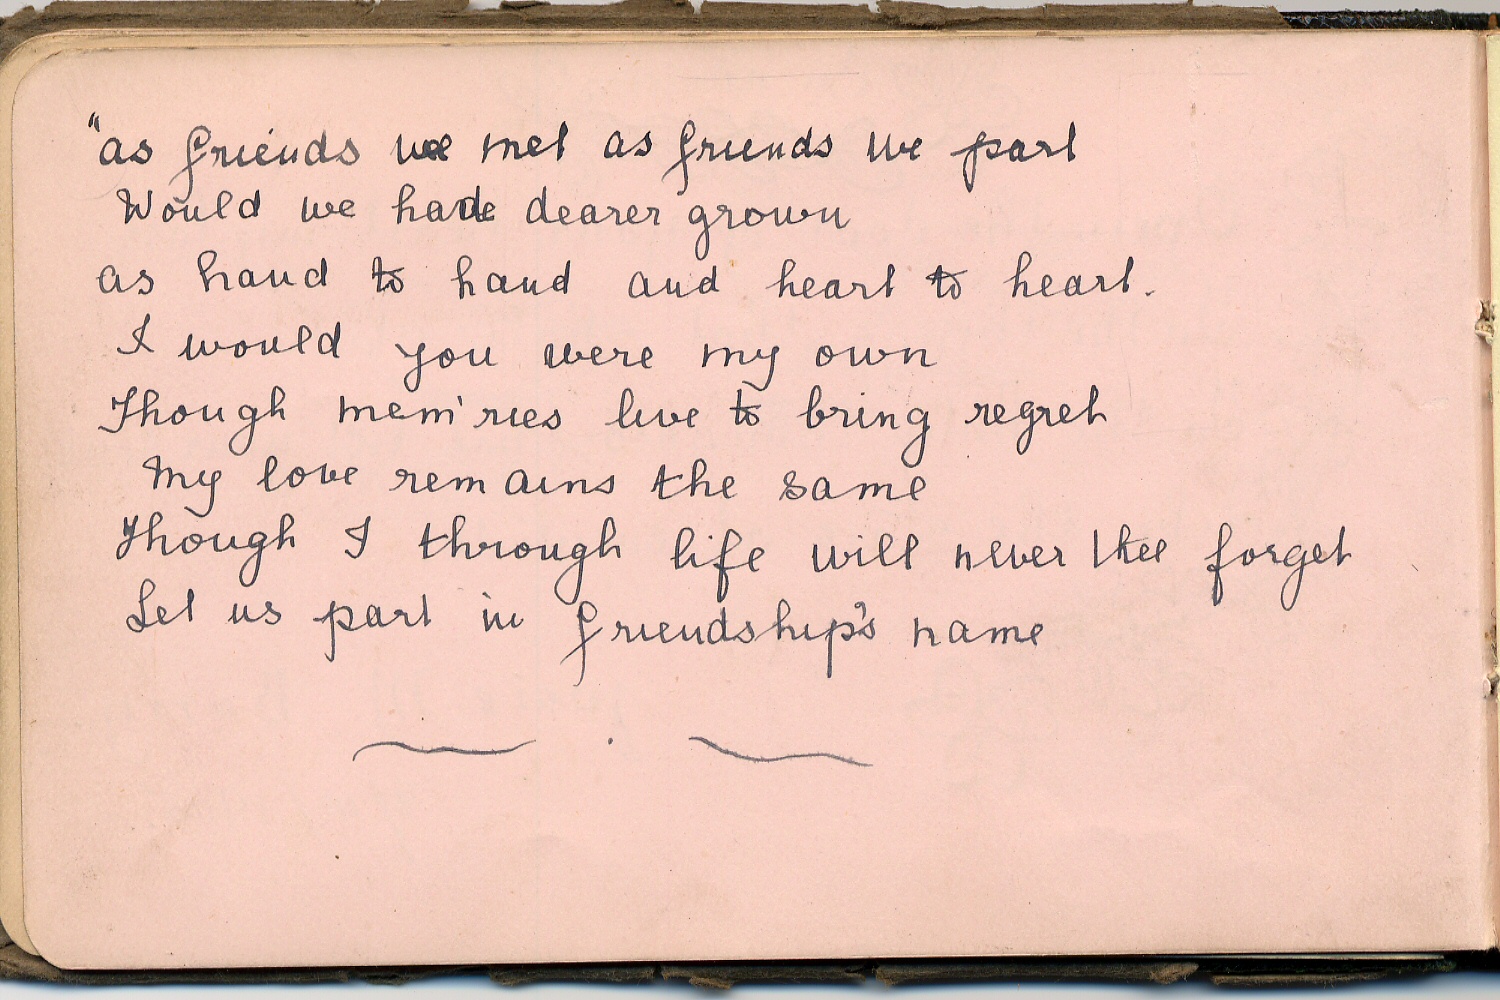 "as friends we met as friends we part
Would we had dearer grown
as hand to hand and heart to heart.
I would you were my own
Though mem'ries live to bring regret
My love remains the same
Though I through life will never thee forget
Let us part in friendship's name